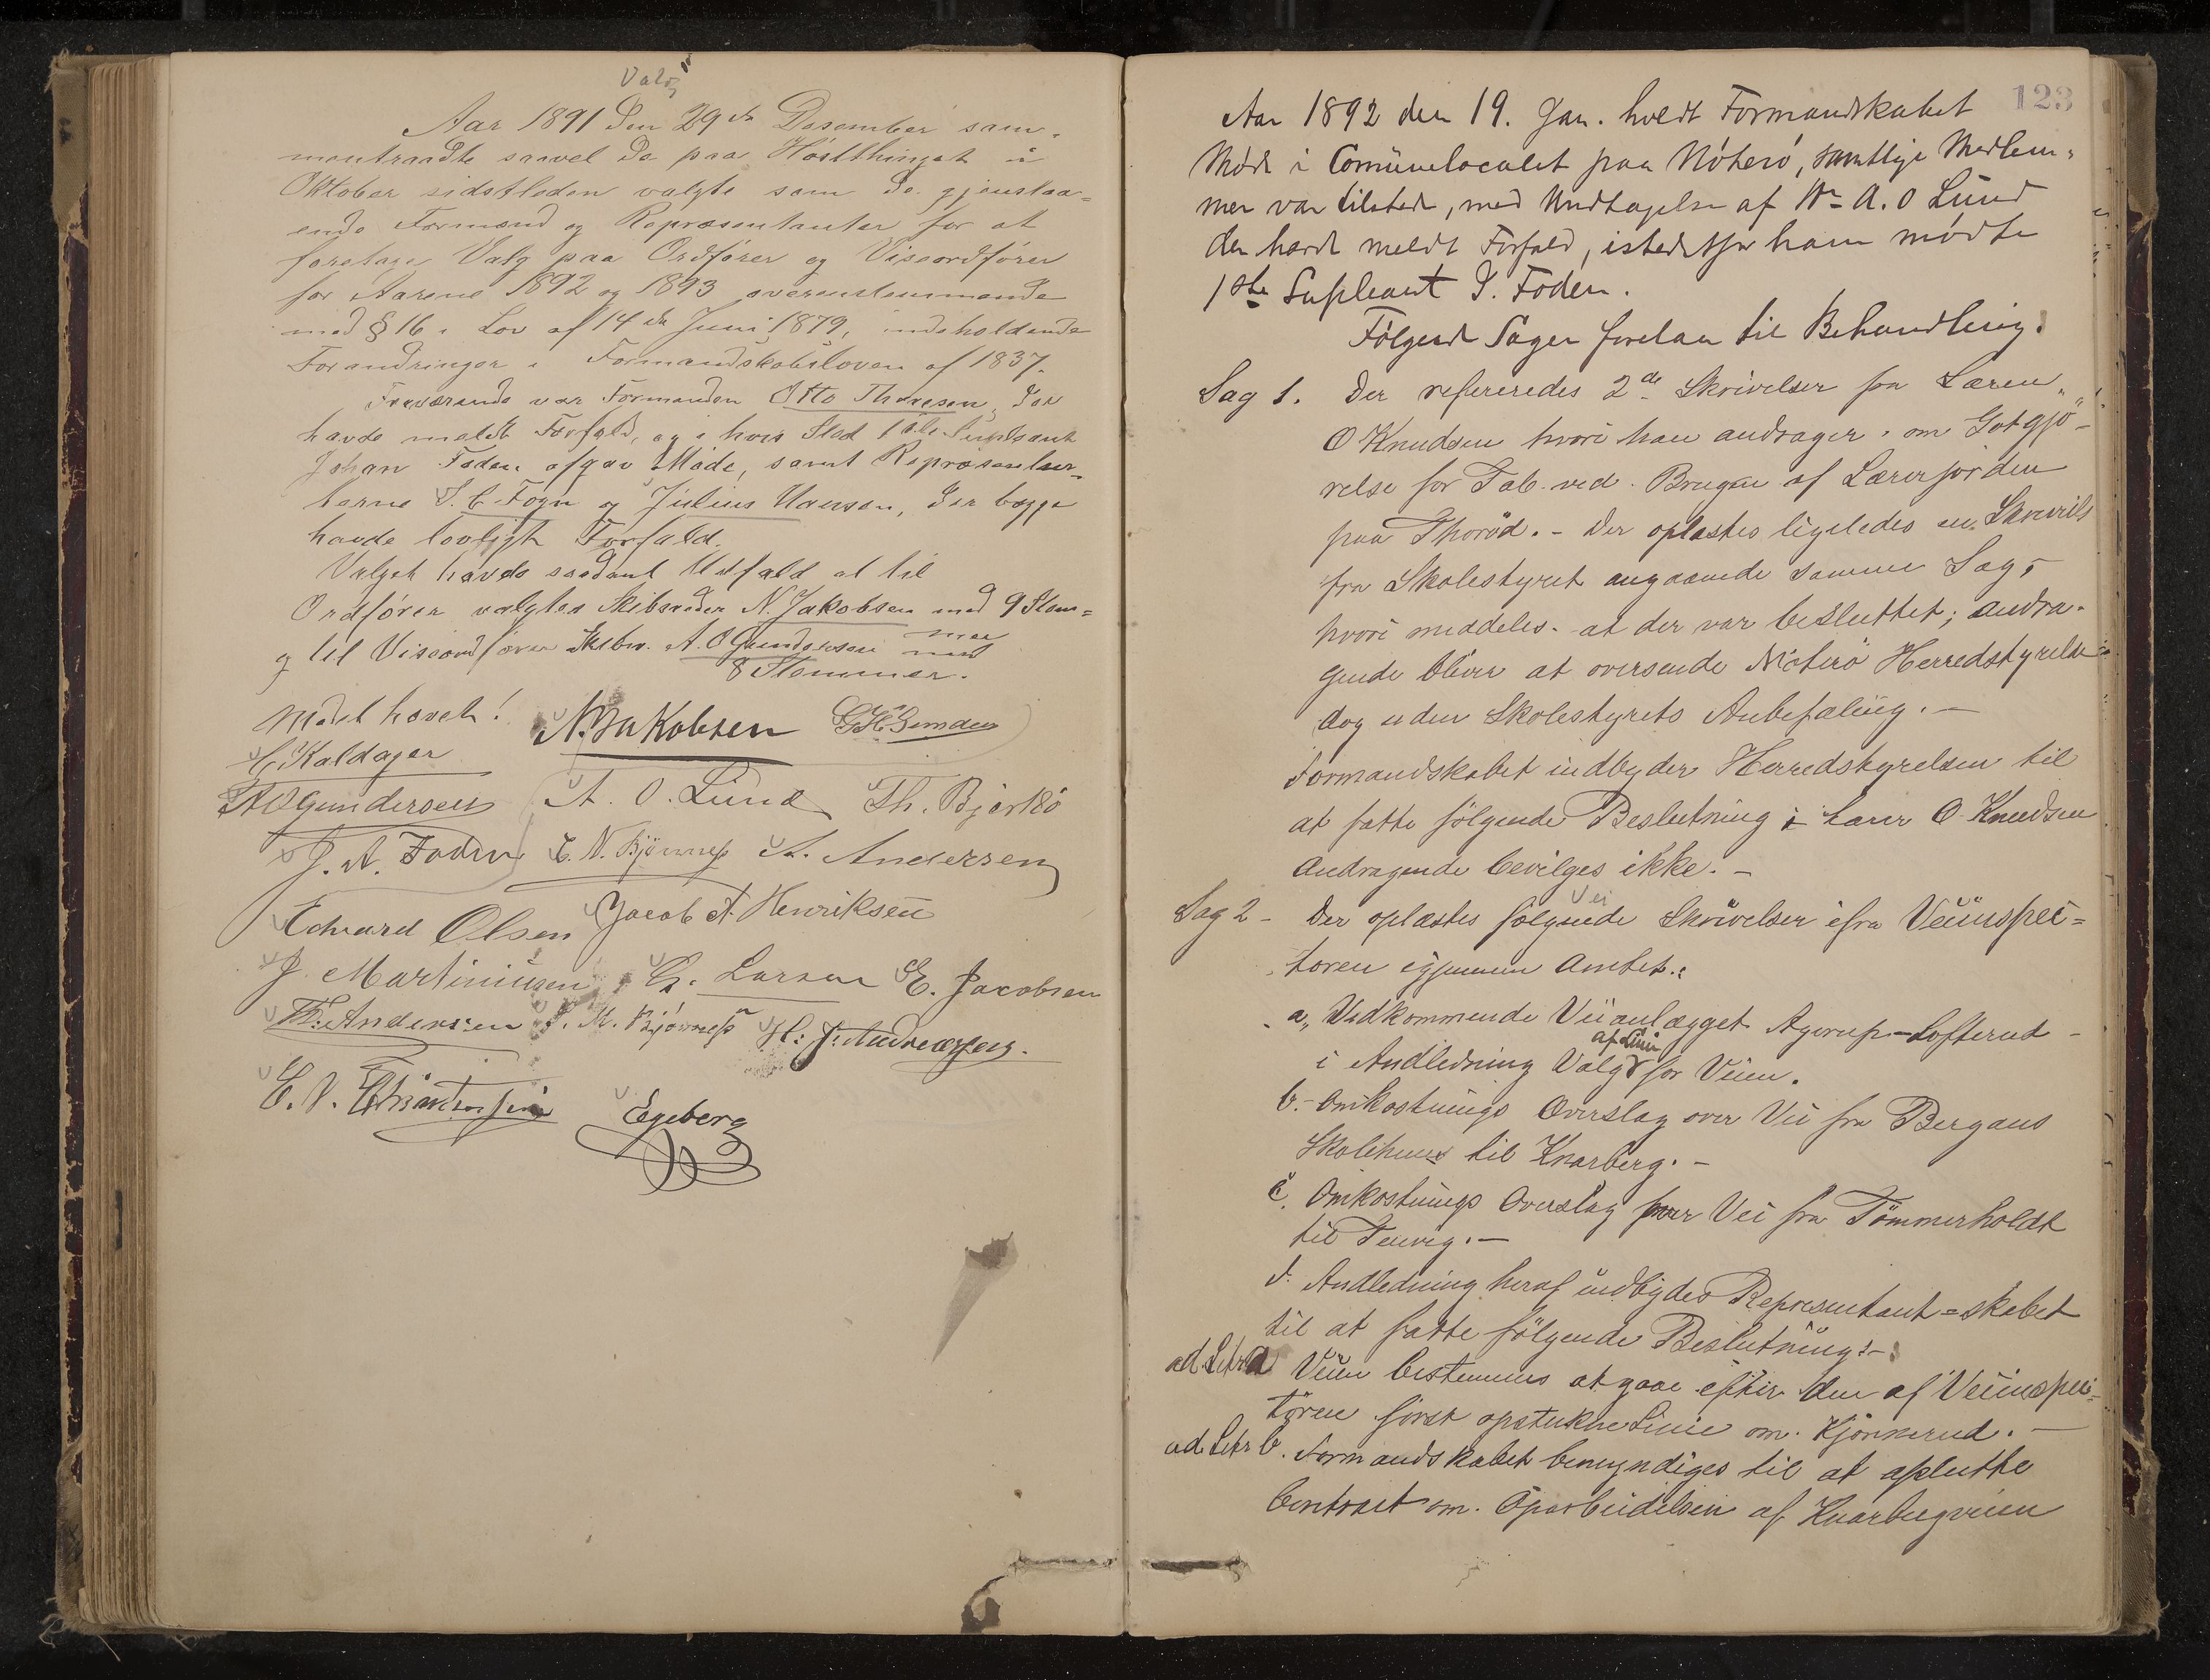 Valg
Aar 1891 Den 29de Desember sam-
mentraadte saavel de paa Høstthinget i
Oktober sidstleden valgte som de gjenstaa-
ende Formænd og Repræsentanter for at
foretage Valg paa Ordfører og Viseordfører
for Aarene 1892 og 1893 overensstemmende
med § 16 i Lov af 14de Juni 1879, indeholdende
Forandringer i Formandskabsloven af 1837.
Fraværende var Formanden Otto Thoresen, der
havde meldt Forfald, og i hvis Sted 1ste Supleant
Johan Foden afgav Møde, samt Repræsentan-
terne S. C. Fogn og Julius Hansen, der begge
havde lovligt Forfald.
Valget havde saadant Udfald at til
Ordfører valgtes Skibsreder N. Jakobsen med 9 Stem=
mer
og til Viseordfører Skibsr. A. O Gundersen med
8 Stemmer.
Mødet hævet!
N. Jakobsen
C. Kaldager
AOGundersen A. O. Lund Th. Bjerkø
J. A. Foden E. N. Bjønnes A. Andersen
Edvard Olsen Jacob A. Henriksen
J Martiniusen G. Larsen E. Jacobsen
Th: Andersen M. Bjønnes H: J. Andreassen.
E. V.
Egeberg
123
Aar 1892 den 19. Jan. holdt Formandskabet
Møde i Comünelocalet paa Nøterø, samtlige Medlem=
mer var tilstede, med Undtagelse af A. O Lund
der havde meldt Forfald, istedetfor ham mødte
1ste Supleant J. Foden.
Følgende Sager forelaa til Behandling.
Sag 1. Der refereredes 2de Skrivelser fra Læren
O Knudsen hvori han andrager om Gotgjö-
relse for Tab ved Brugen af Lærerjorden
paa Thorød. - Der oplæstes ligeledes en Skrivels
fra Skolestyret angaaende samme Sag,
hvori meddeles at der var besluttet; andra-
gende bliver at oversende Nøterø Herredstyrelse
dog uden Skolestyrets Anbefaling. -
Formandskabet indbyder Herredstyrelsen til
at fatte følgende Beslutning : Lærer O Knudsen
Andragende bevilges ikke. -
Vei
Sag 2 - Der oplæstes følgende Skrivelser ifra Veiinspec=
toren igjennem Amtet.:
a, Vedkommende Veianlægget Agerup-Lofterud -
af Linie
i Andledning Valg for Veien.
b. Omkostnings Overslag over Vei fra Bergans
Skolehuus til Knarberg. -
c. Omkostnings Overslag over Vei fra Tömmerholdt
til Tenvig. -
I Andledning heraf indbydes Representant=skabet
til at fatte følgende Beslutning:-
ad Litr a Veien bestemmes at gaae efter den af Veiinspec=
tören først opstukne Linie om Kjønnerud. -
ad Litr b. Formandskabet bemyndiges til at aflutte
Contract om Oparbeidelsen af Knarbergveien